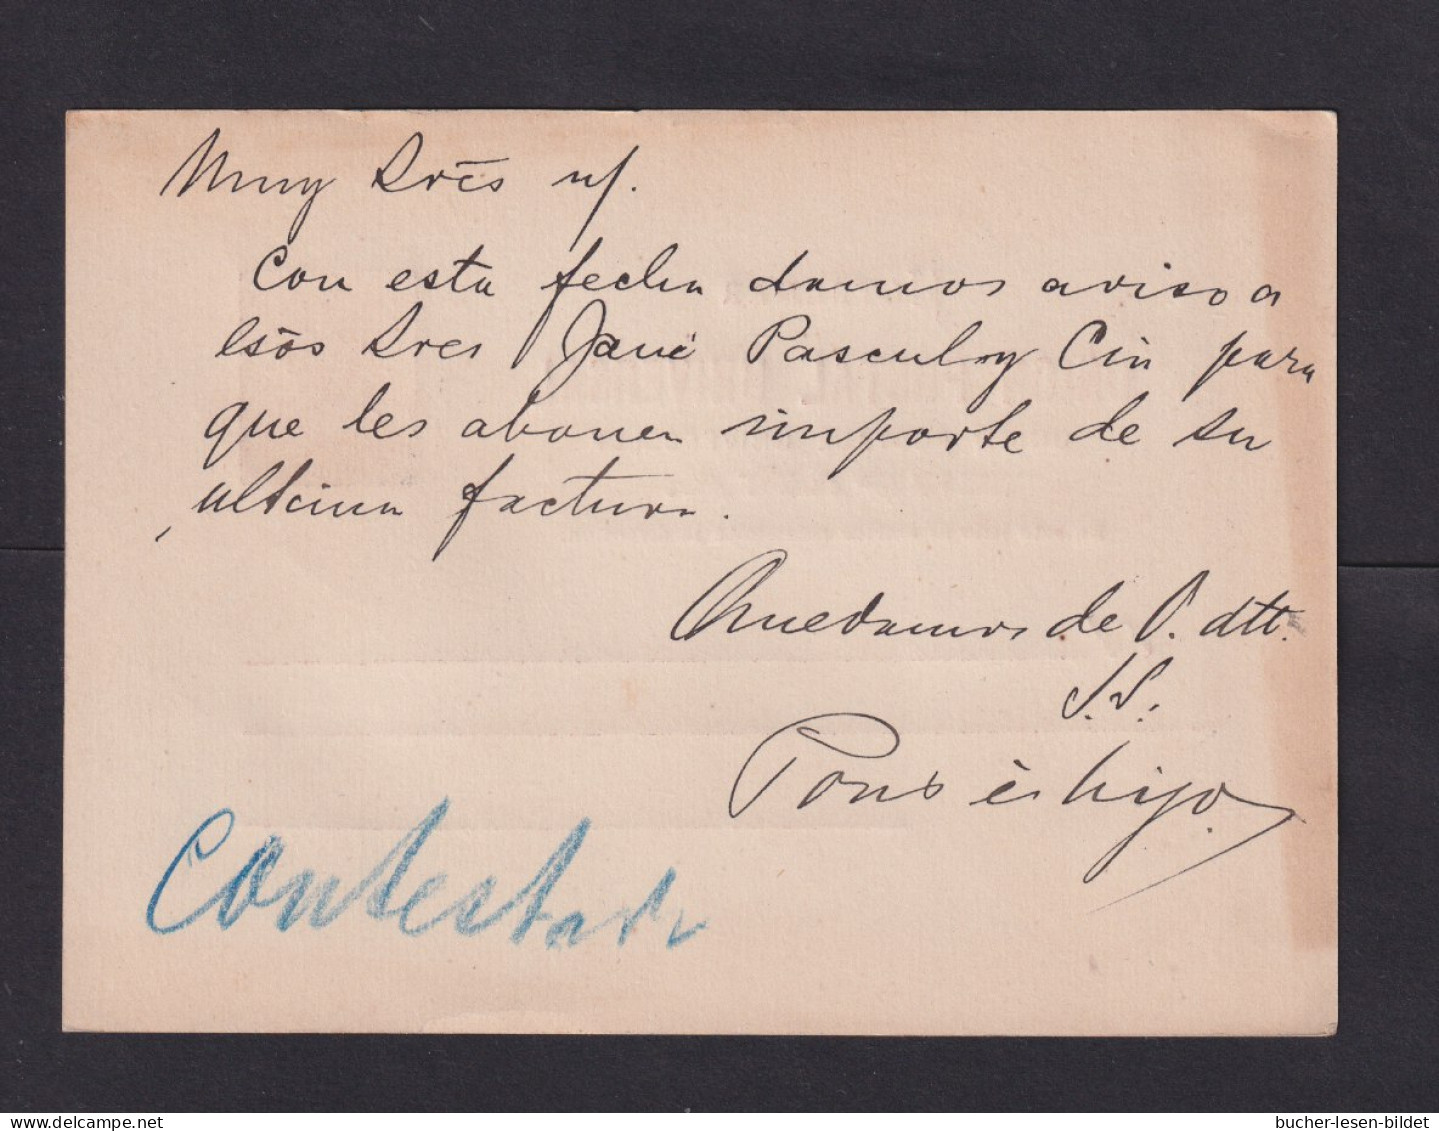 Muy Srēs n/.
Con esta fecha damos aviso a
esōs Sres Jané Pascual y Cia para
que les abonen importe de su
ultima factura.
Quedamos de V. att.
S.S.
Pons è hijo
Contestada
bucher-lesen-bildet